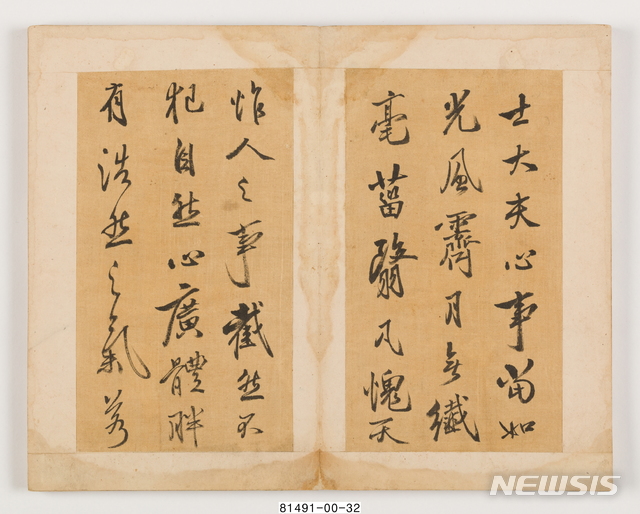 士大夫心事當如
光風霽月無纖
毫菑翳凡愧天
怍人之事截然不
犯自然心廣體胖
有浩然之氣若
81491-00-32
NEWSIS